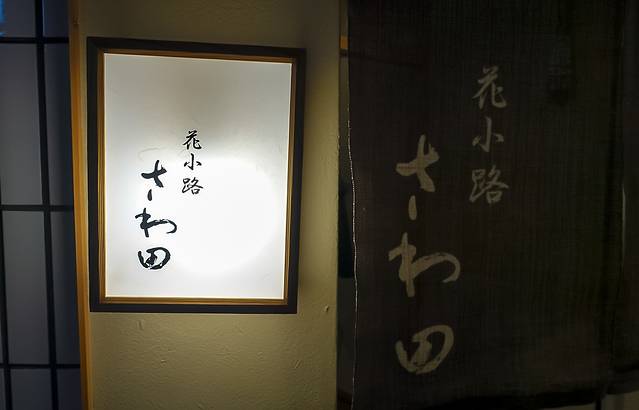 花小路
さわ田
花小路
さわ田